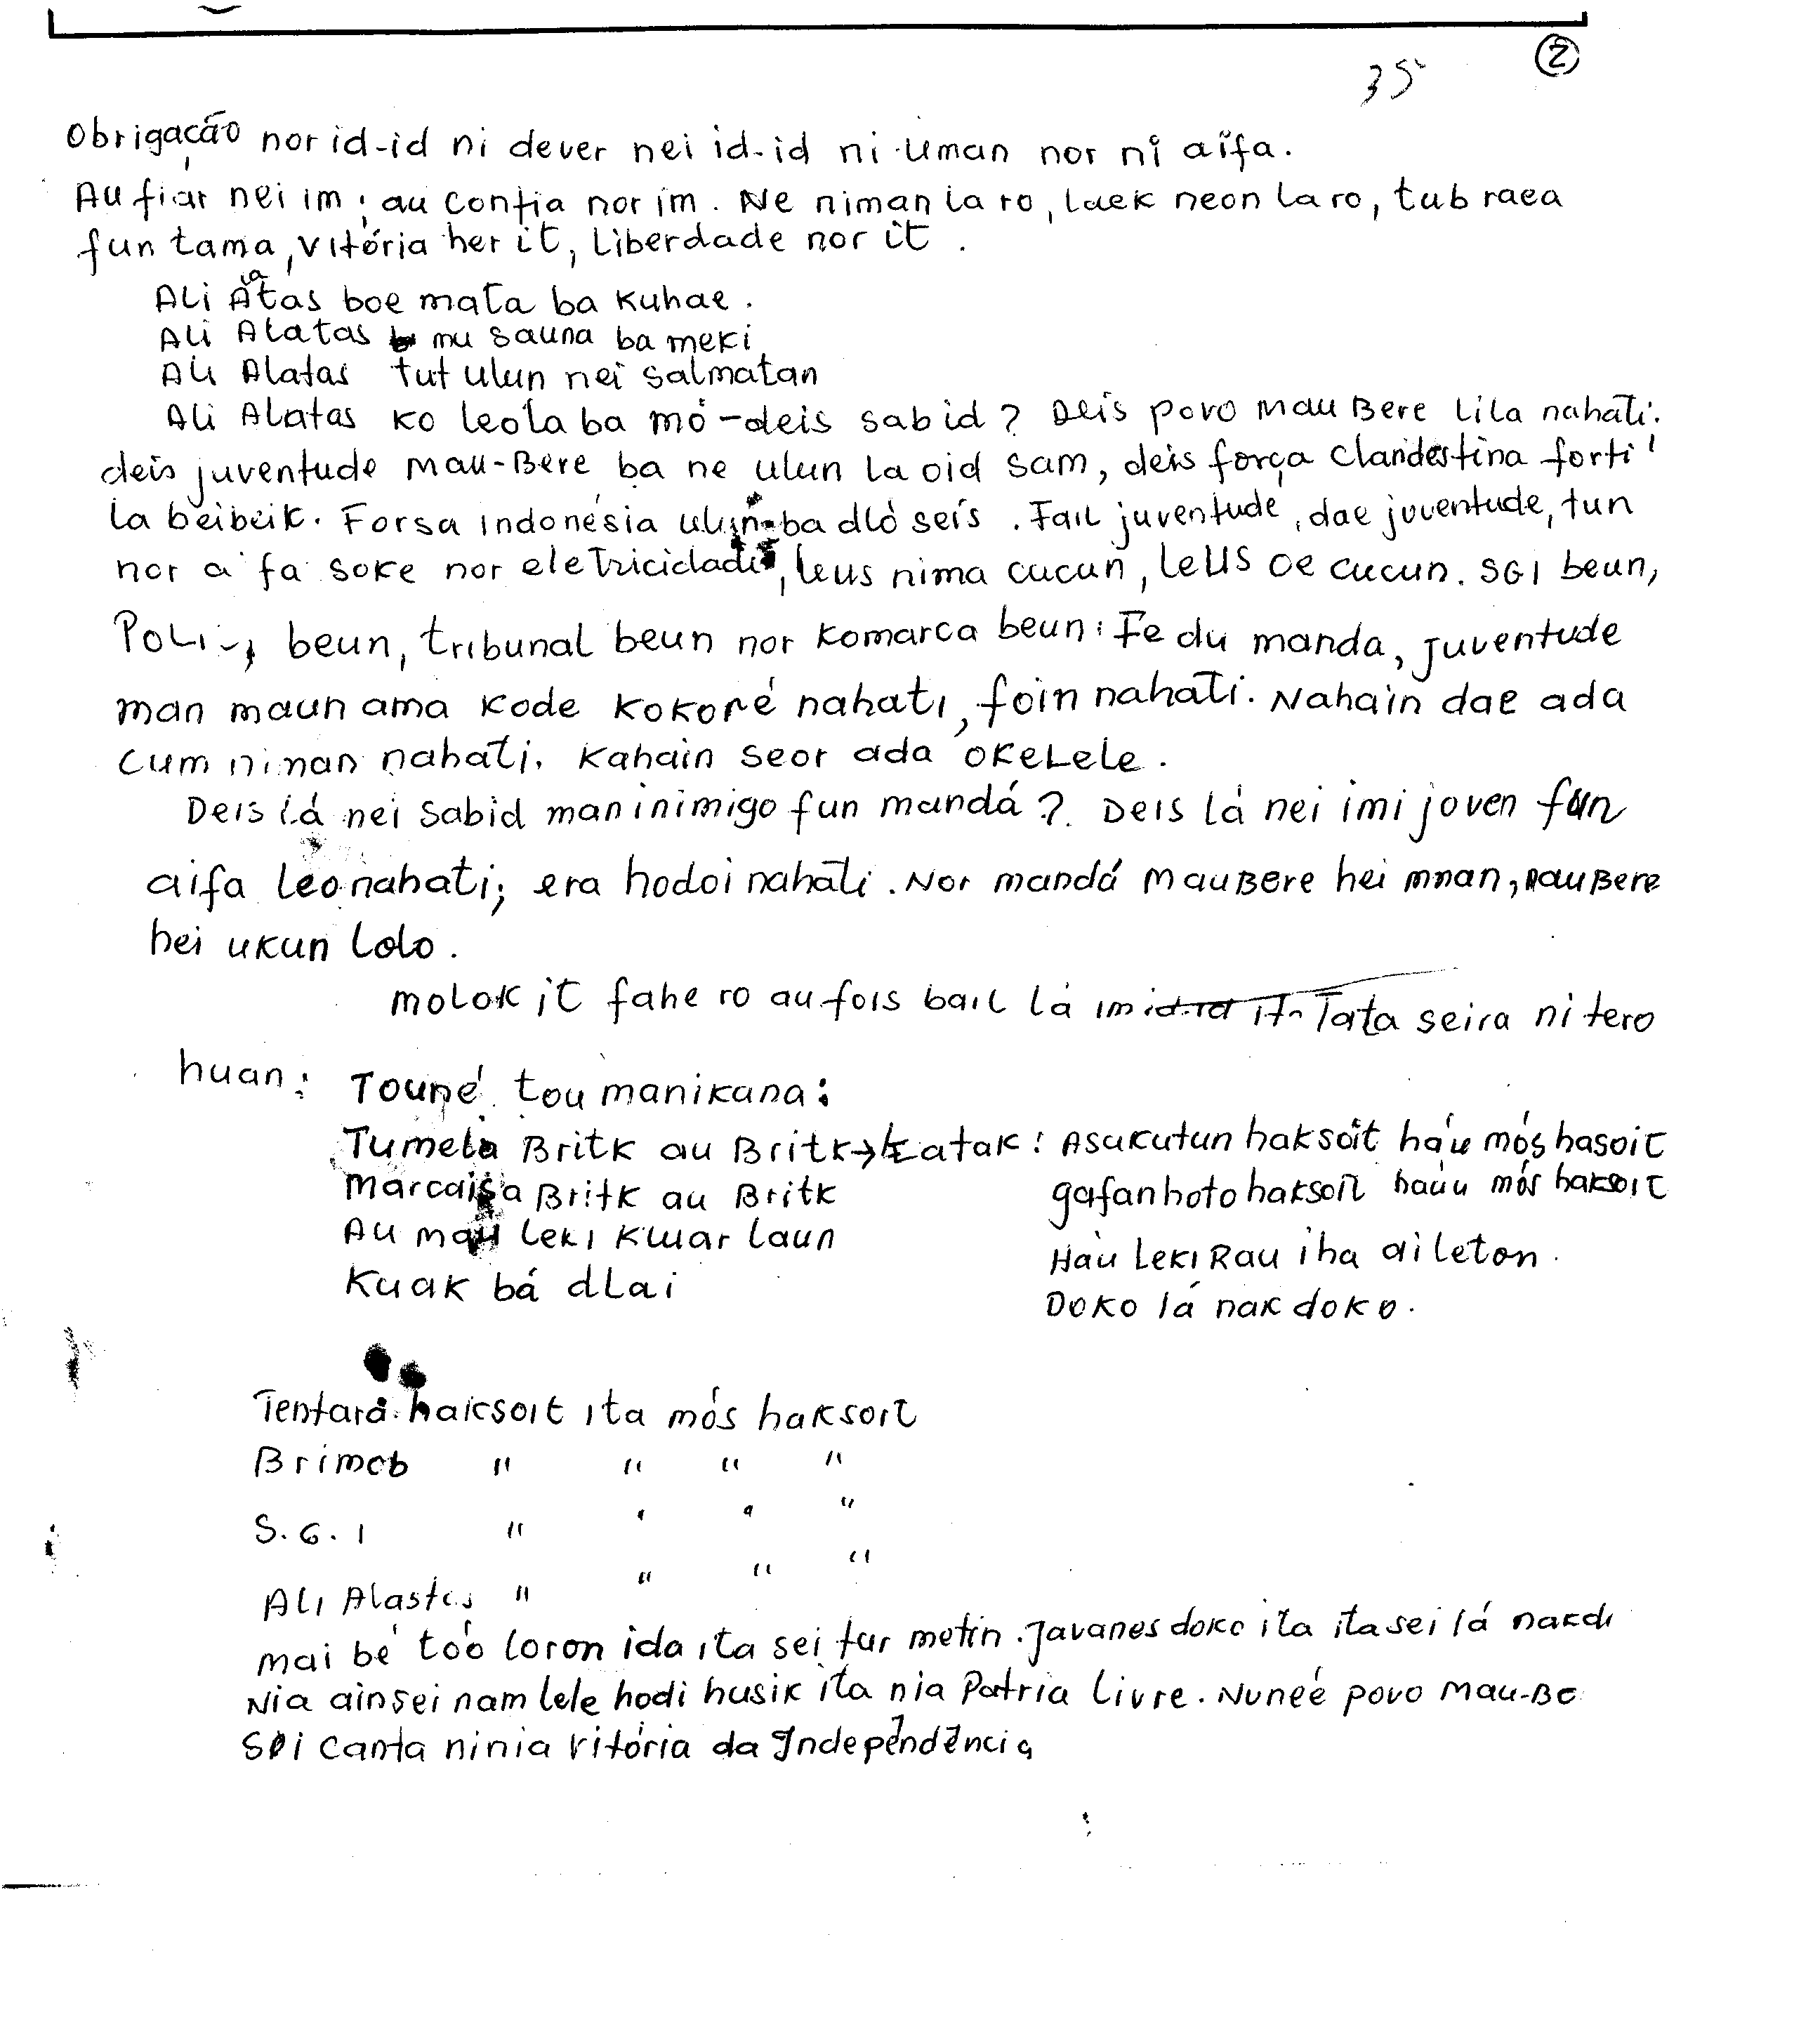 2
35
Obrigação nor id-id ni dever nei id-id ni uman nor ni aifa.
Au fiar nei im; au confia nor im. Ne niman la ro, laek neon la ro, tub raea
fun tama, vitória her it, Liberdade nor it.
Ali Alatas boe mata ba kuhae.
Ali Alatas mu sauna ba meki
Ali Alatas tut ulun nei salmatan
Ali Alatas ko leola ba mó-deis sab id? Deis povo mau Bere lila nahati.
deis juventude mau-Bere ba ne ulun la oid sam, deis força clandestina forti
la beibeik. Forsa indonésia ulun ba dló seis. Fail juventude, dae juventude, tun
nor a fa soke nor eletricidade, leus nima cucun, leus oe cucun. SGI beun,
beun, tribunal beun nor komarca beun: Fe du manda, juventude
man maun ama kode kokoré nahati, foin nahati. Nahain dae ada
cum ninan nahati. Kahain seor ada okelele.
Deis lá nei sabid man inimigo fun mandá? Deis lá nei imi joven fun
aifa leo nahati; era hodoi nahati. Nor mandá mauBere hei mnan, mauBere
hei ukun lolo.
molok it fahe ro au fois bail lá Tata seira ni tero
huan: Touné tou manikana:
Tumela Britk au Britk → Katak: Asukutun haksoit háu mós hasoit
Marcaisa Britk au Britk gafanhoto haksoit háuu mós haksoit
Au mau leki kluar laun Háu leki Rau iha ai leton.
Kuak bá dlai Doko lá nak doko.
Tentara haksoit ita mós haksoit
Brimob " " " "
S.G.I " " " "
Ali Alastas " " " "
mai bé tóo loron ida ita sei tur metin. Javanes doko ita ita sei lá nakd
Nia ain sei nam lele hodi husik ita nia Patria livre. Nuneé povo Mau-Be
sei canta ninia vitória da Independência